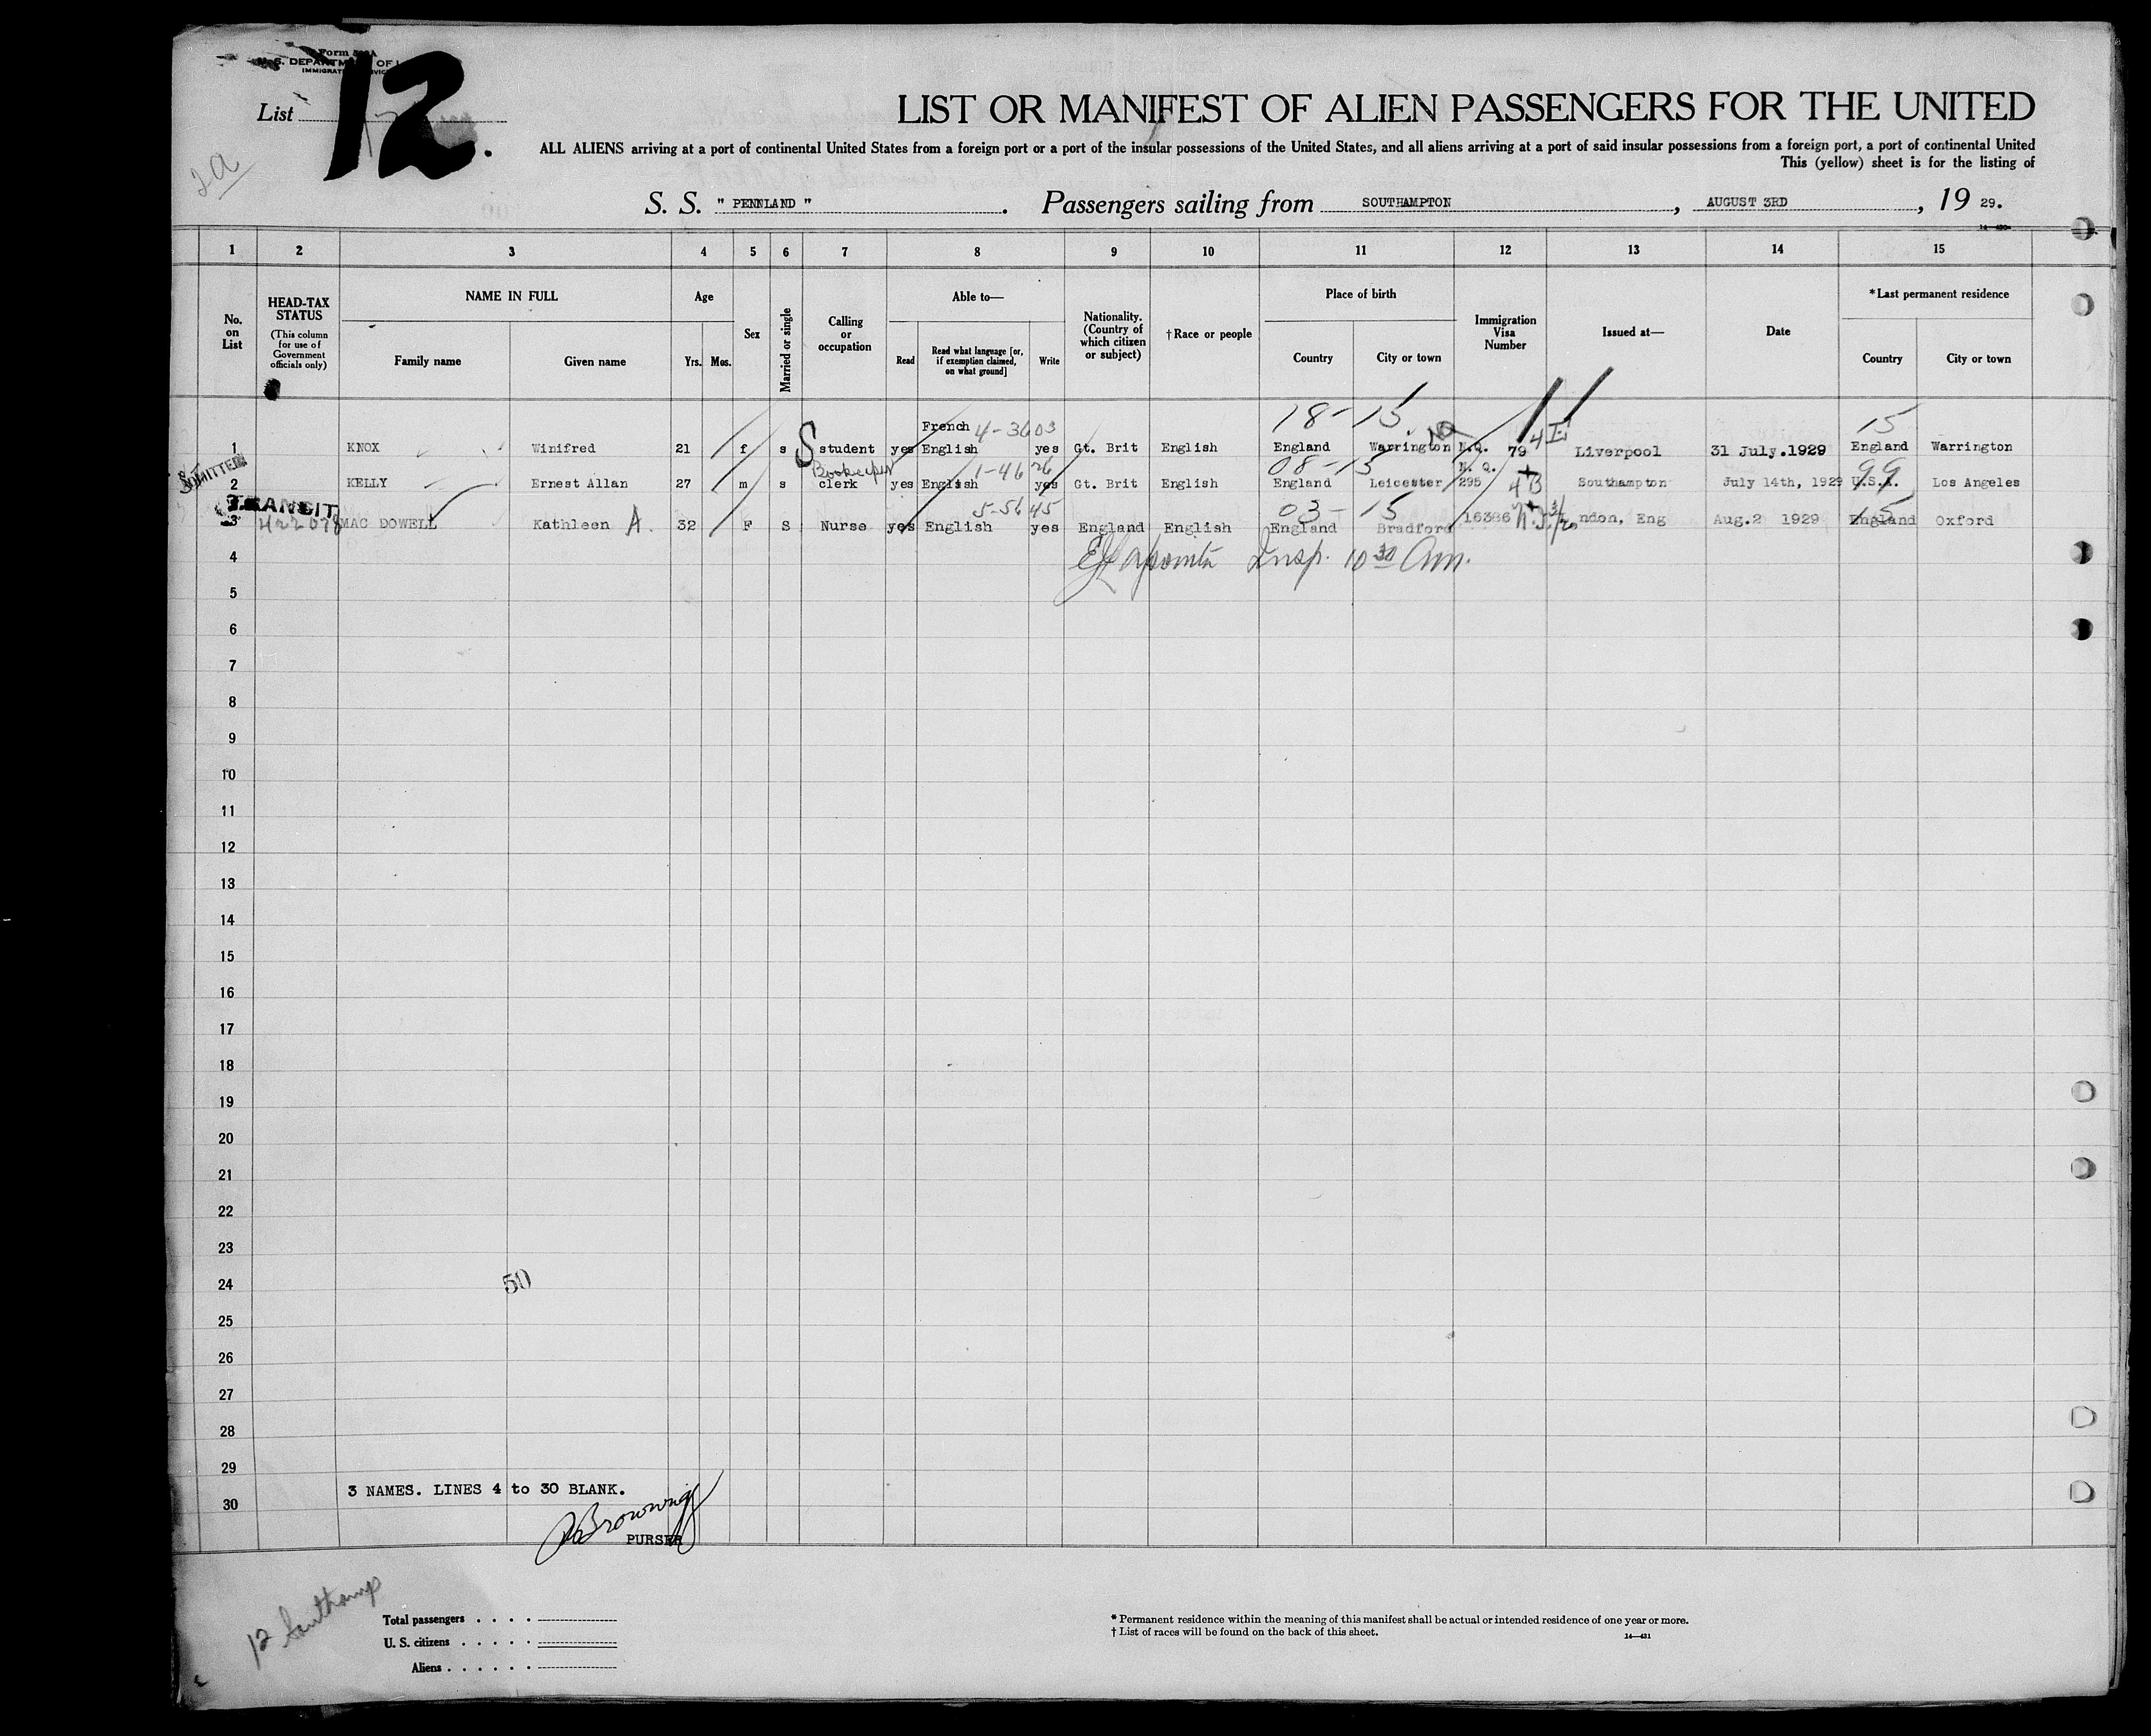 Form
U. S. DEPARTMENT OF
IMMIGRAT
List 12.
2a
LIST OR MANIFEST OF ALIEN PASSENGERS FOR THE UNITED
ALL ALIENS arriving at a port of continental United States from a foreign port or a port of the insular possessions of the United States, and all aliens arriving at a port of said insular possessions from a foreign port, a port of continental United
This (yellow) sheet is for the listing of
S. S. " PENNLAND " . Passengers sailing from SOUTHAMPTON , AUGUST 3RD , 19 29.
1 2 3 4 5 6 7 8 9 10 11 12 13 14 15
No. on List HEAD-TAX STATUS (This column for use of Government officials only) NAME IN FULL Family name Given name Age Yrs. Mos. Sex Married or single Calling or occupation Able to— Read Read what language [or, if exemption claimed, on what ground] Write Nationality. (Country of which citizen or subject) †Race or people Place of birth Country City or town Immigration Visa Number Issued at— Date *Last permanent residence Country City or town
French 4-3603 18-15. 15
1 KNOX Winifred 21 f s S student yes English yes Gt. Brit English England Warrington N.Q. 79 Liverpool 31 July.1929 England Warrington
ADMITTED Bookeeper 1-46 26 08-15 N. Q. 99
2 KELLY Ernest Allan 27 m s clerk yes English yes Gt. Brit English England Leicester 295 4B Southampton July 14th, 1929 U.S.A. Los Angeles
TRANSIT 5-56 45 03-15 15
3 MAC DOWELL Kathleen A. 32 F S Nurse yes English yes England English England Bradford 16386 ndon, Eng Aug.2 1929 England Oxford
4 Insp. 10 30 Am.
5
6
7
8
9
10
11
12
13
14
15
16
17
18
19
20
21
22
23
24 50
25
26
27
28
29
3 NAMES. LINES 4 to 30 BLANK.
30
Browning
PURSER
12 Southamp
Total passengers . . . .
U. S. citizens . . . . .
Aliens . . . . . .
* Permanent residence within the meaning of this manifest shall be actual or intended residence of one year or more.
† List of races will be found on the back of this sheet.
14—431